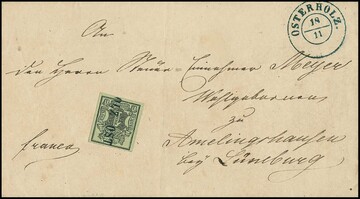 OSTERHOLZ.
18
11
An
den Herrn Steuer-Einnehmer Meyer
Wohlgeboren
zu
franco
Amelinghausen
bey Lüneburg